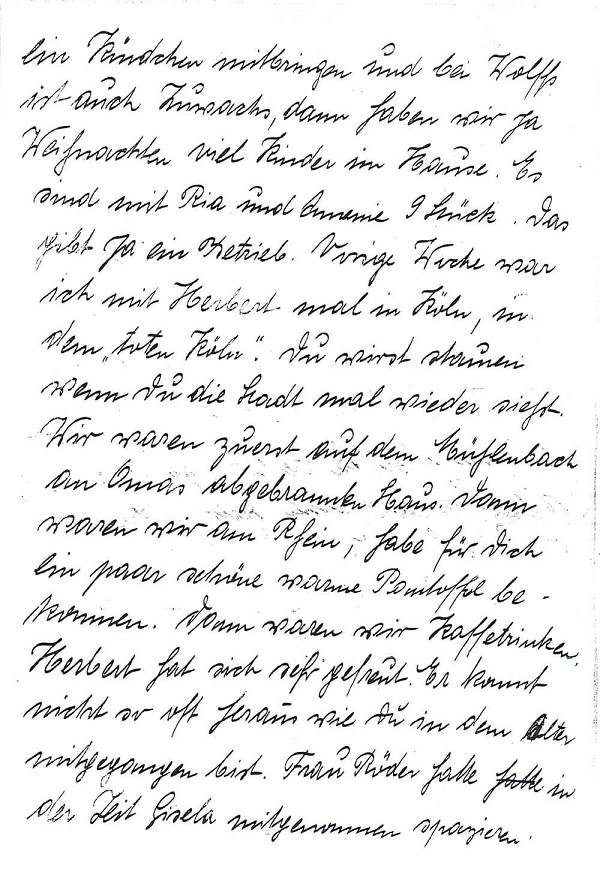 ein Kindchen mitbringen und bei Wolffs
ist auch Zuwachs, dann haben wir ja
Weihnachten viel Kinder im Hause. Es
sind mit Ria und Annemie 9 Stück. Das
gibt ja ein Betrieb. Vorige Woche war
ich mit Herbert mal in Köln, in
dem „toten Köln". Du wirst staunen
wenn Du die Stadt mal wieder siehst.
Wir waren zuerst auf dem Mühlenbach
an Omas abgebrannten Haus. Dann
waren wir am Rhein, habe für Dich
ein paar schöne warme Pantoffel be-
kommen. Dann waren wir Kaffetrinken,
Herbert hat sich sehr gefreut. Er kommt
nicht so oft heraus wie Du in dem Alter
mitgegangen bist. Frau Röder hatte hatte in
der Zeit Gisela mitgenommen spazieren.